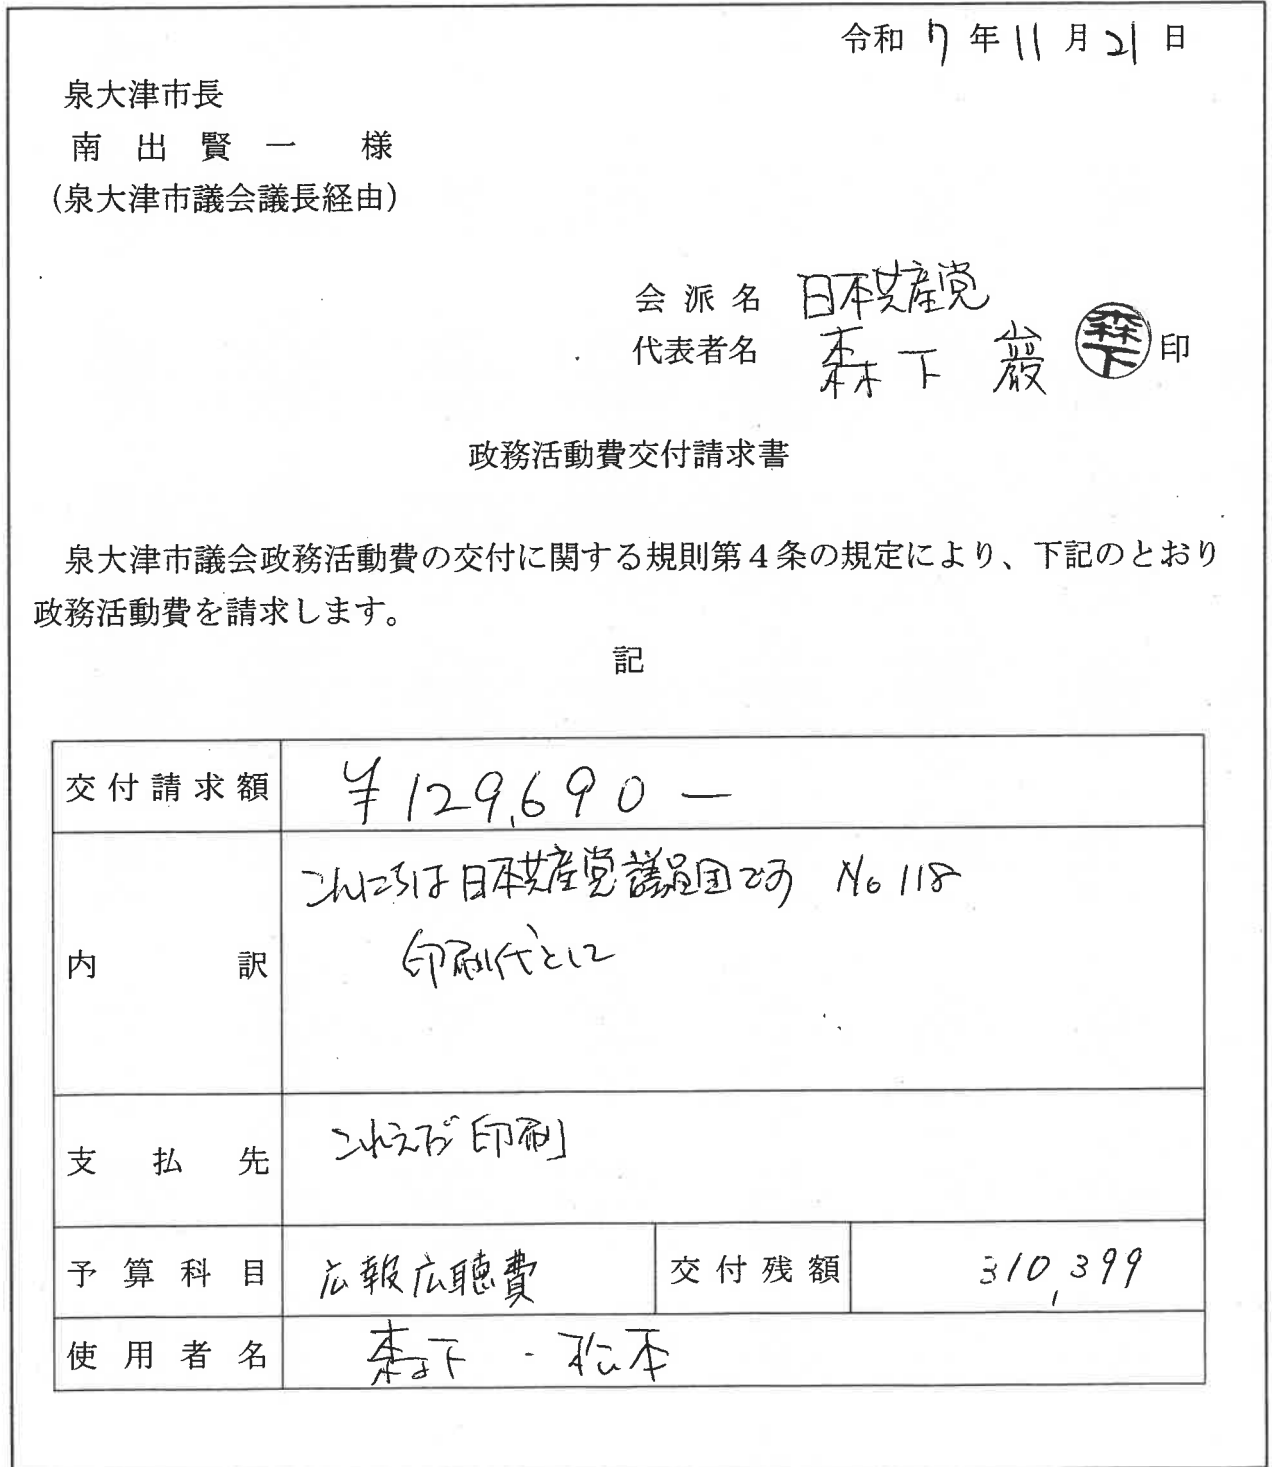 令和 7 年 11 月 21 日
泉大津市長
南 出 賢 一 様
(泉大津市議会議長経由)
会 派 名 日本共産党
代表者名 森下 巖 森下 印
政務活動費交付請求書
泉大津市議会政務活動費の交付に関する規則第4条の規定により、下記のとおり
政務活動費を請求します。
記
交付請求額 ¥129,690－
こんにちは日本共産党議員団です No 118
内 訳 印刷代として
支 払 先 印刷
予 算 科 目 広報広聴費 交 付 残 額 310,399
使 用 者 名 森下・松本